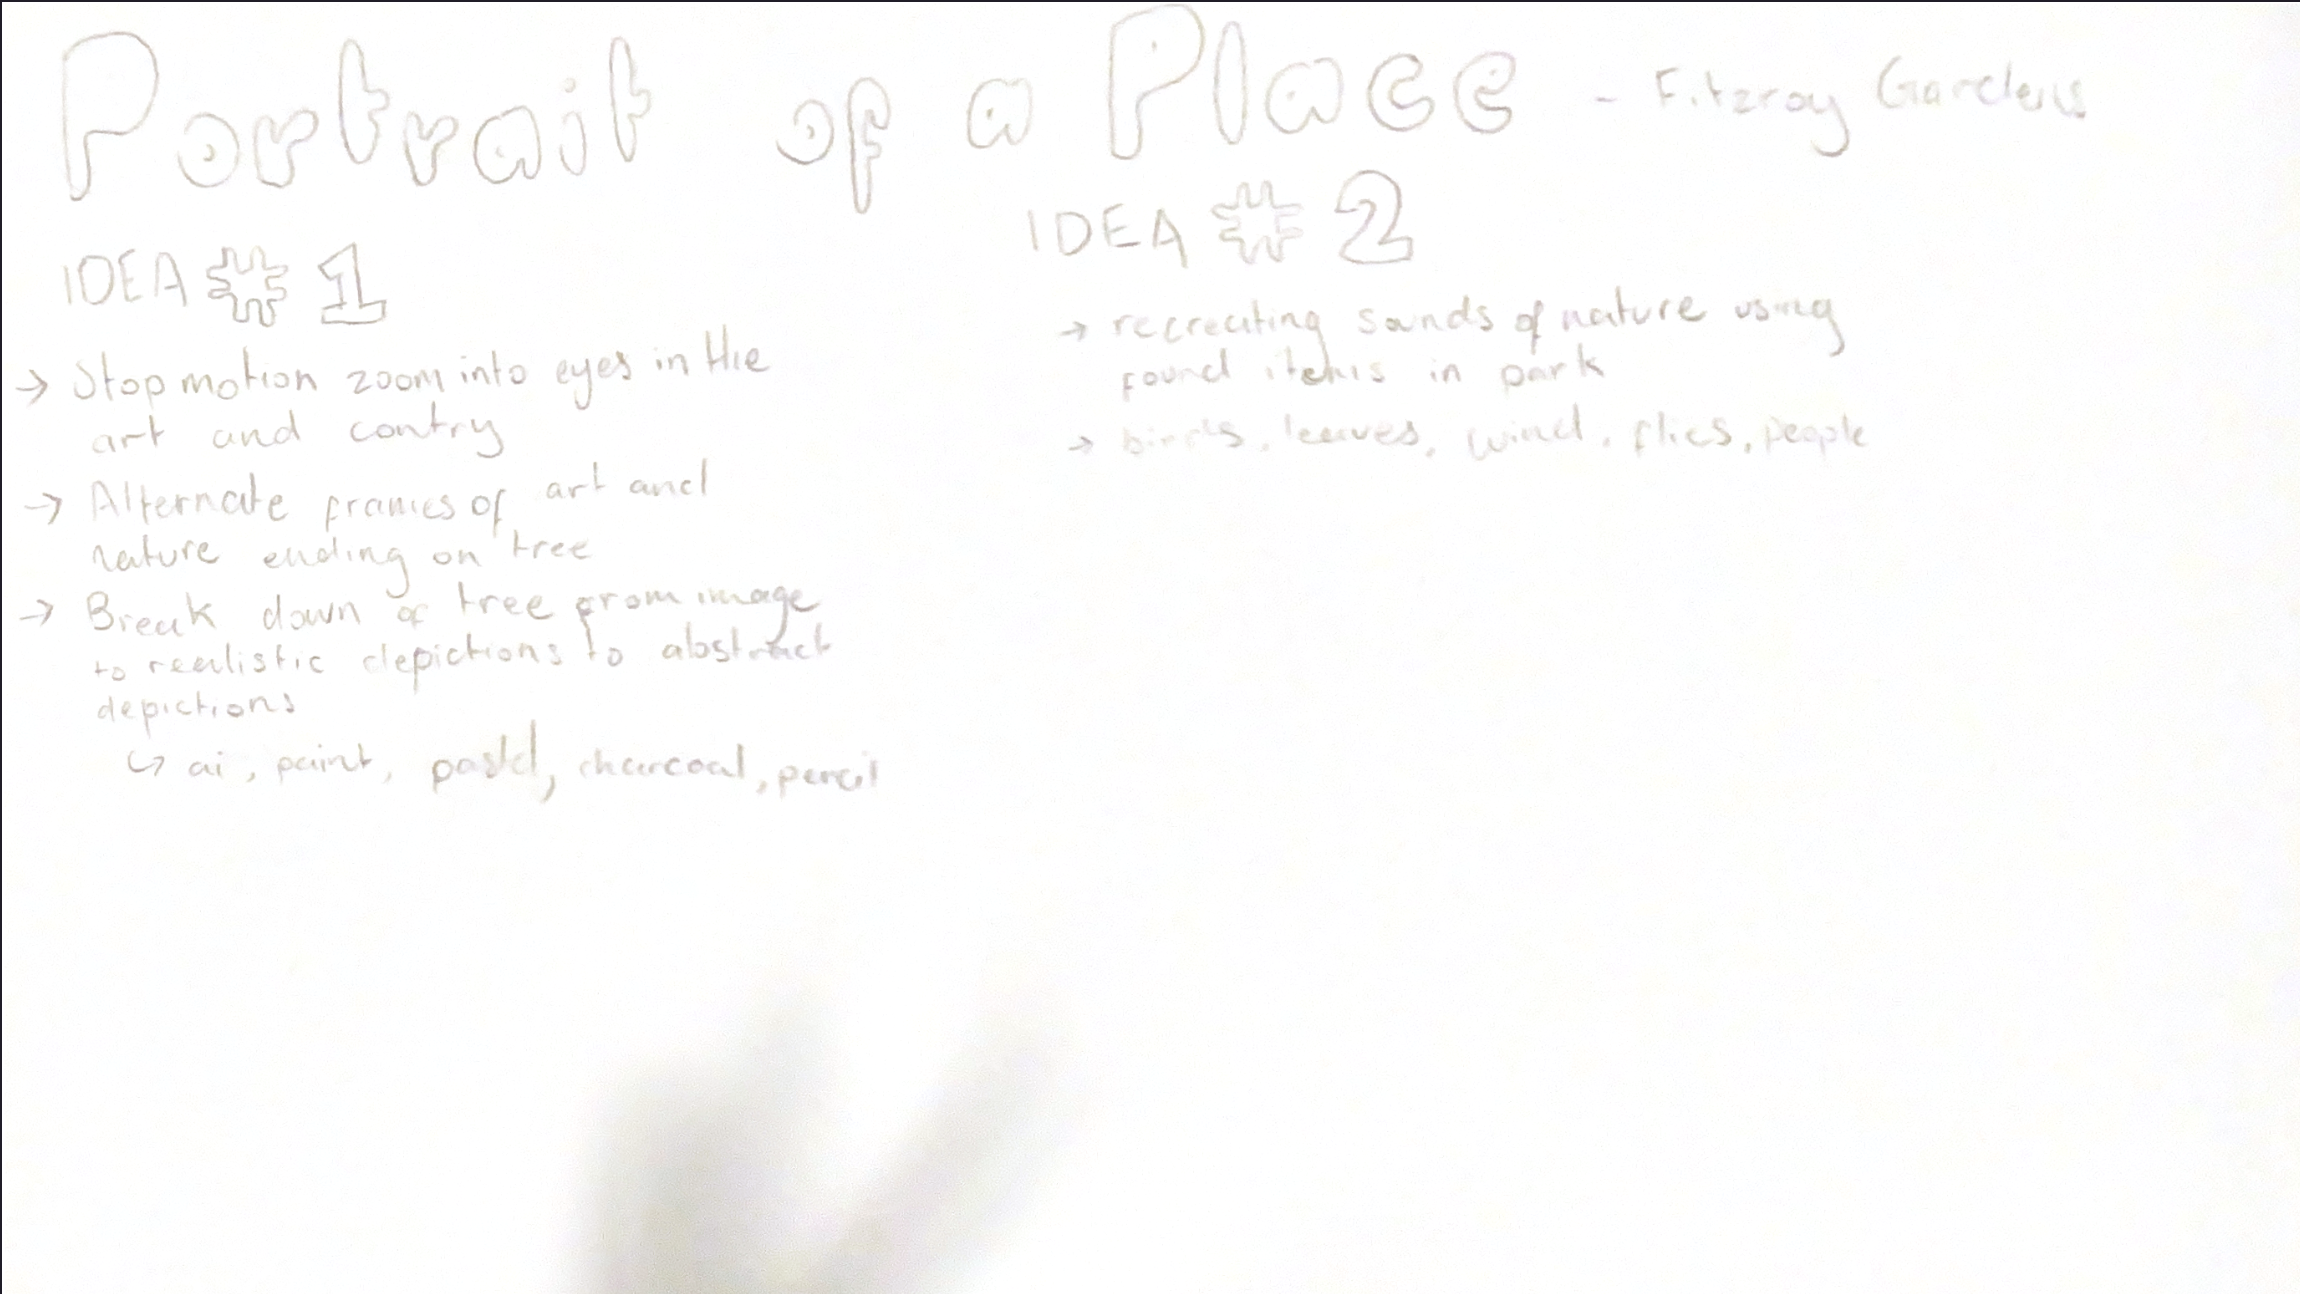 Portrait of a Place - Fitzroy Gardens
IDEA #1
→ Stop motion zoom into eyes in the
art and contry
→ Alternate frames of art and
nature ending on tree
→ Break down of tree from image
to realistic depictions to abstract
depictions
↳ ai, paint, pastel, charcoal, pencil
IDEA #2
→ recreating sounds of nature using
found items in park
→ birds, leaves, wind, flies, people